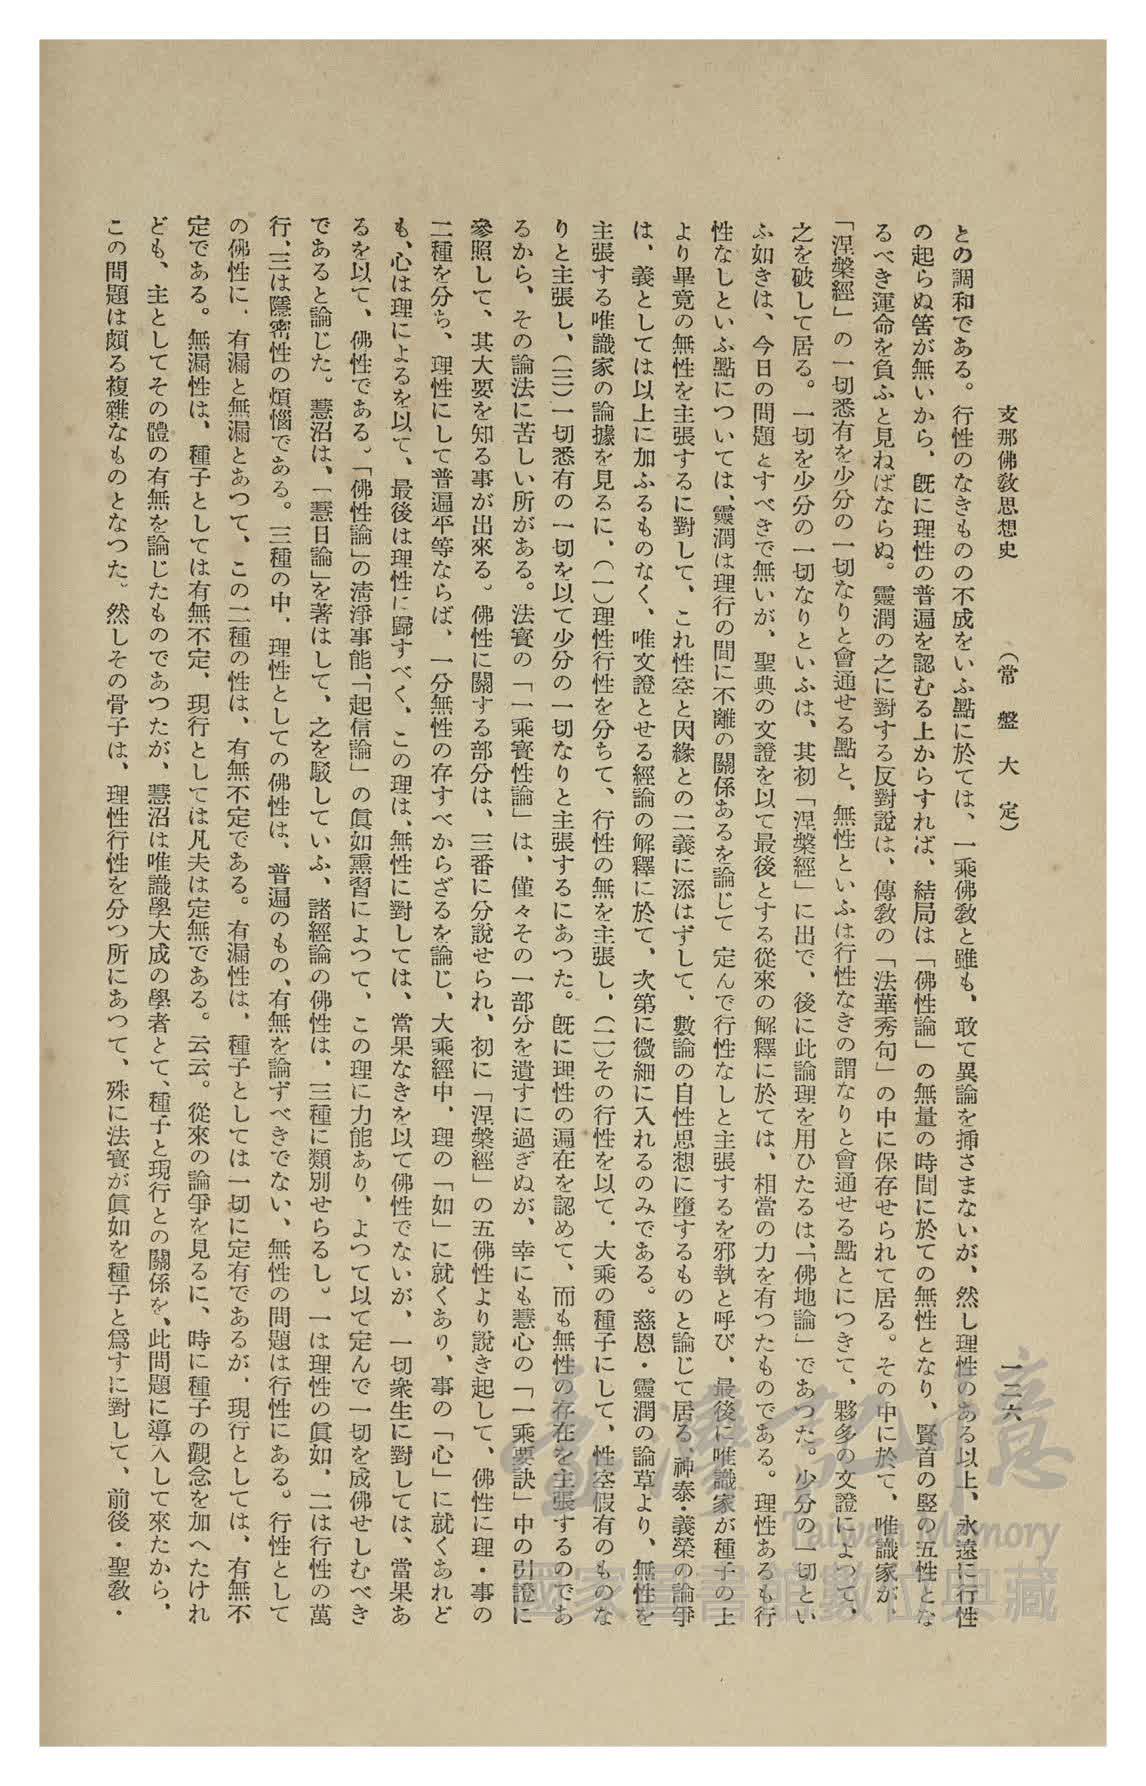 支那佛敎思想史　　（常盤大定）　　一二六
との調和である。行性のなきものの不成をいふ點に於ては、一乘佛敎と雖も、敢て異論を揷さまないが、然し理性のある以上、永遠に行性
の起らぬ筈が無いから、旣に理性の普遍を認むる上からすれば、結局は「佛性論」の無量の時間に於ての無性となり、賢首の竪の五性とな
るべき運命を負ふと見ねばならぬ。靈潤の之に對する反對說は、傳敎の「法華秀句」の中に保存せられて居る。その中に於て、唯識家が、
「涅槃經」の一切悉有を少分の一切なりと會通せる點と、無性といふは行性なきの謂なりと會通せる點とにつきて、夥多の文證によつて、
之を破して居る。一切を少分の一切なりといふは、其初「涅槃經」に出で、後に此論理を用ひたるは、「佛地論」であつた。少分の一切とい
ふ如きは、今日の問題とすべきで無いが、聖典の文證を以て最後とする從來の解釋に於ては、相當の力を有つたものである。理性あるも行
性なしといふ點については、靈潤は理行の間に不離の關係あるを論じて 定んで行性なしと主張するを邪執と呼び、最後に唯識家が種子の上
より畢竟の無性を主張するに對して、これ性空と因緣との二義に添はずして、數論の自性思想に墮するものと論じて居る、神泰・義榮の論爭
は、義としては以上に加ふるものなく、唯文證とせる經論の解釋に於て、次第に微細に入れるのみである。慈恩・靈潤の論草より、無性を
主張する唯識家の論據を見るに、（一）理性行性を分ちて、行性の無を主張し、（二）その行性を以て、大乘の種子にして、性空假有のものな
りと主張し、（三）一切悉有の一切を以て少分の一切なりと主張するにあつた。旣に理性の遍在を認めて、而も無性の存在を主張するのであ
るから、その論法に苦しい所がある。法寶の「一乘實性論」は、僅々その一部分を遺すに過ぎぬが、幸にも慧心の「一乘要訣」中の引證に
參照して、其大要を知る事が出來る。佛性に關する部分は、三番に分說せられ、初に「涅槃經」の五佛性より說き起して、佛性に理・事の
二種を分ち、理性にして普遍平等ならば、一分無性の存すべからざるを論じ、大乘經中、理の「如」に就くあり、事の「心」に就くあれど
も、心は理によるを以て、最後は理性に歸すべく、この理は、無性に對しては、當果なきを以て佛性でないが、一切衆生に對しては、當果あ
るを以て、佛性である。「佛性論」の淸淨事能、「起信論」の眞如熏習によつて、この理に力能あり、よつて以て定んで一切を成佛せしむべき
であると論じた。慧沼は、「慧日論」を著はして、之を駁していふ、諸經論の佛性は、三種に類別せらるし。一は理性の眞如、二は行性の萬
行、三は隱密性の煩惱である。三種の中、理性としての佛性は、普遍のもの、有無を論ずべきでない、無性の問題は行性にある。行性として
の佛性に、有漏と無漏とあつて、この二種の性は、有無不定である。有漏性は、種子としては一切に定有であるが、現行としては、有無不
定である。無漏性は、種子としては有無不定、現行としては凡夫は定無である。云云。從來の論爭を見るに、時に種子の觀念を加へたけれ
ども、主としてその體の有無を論じたものであつたが、慧沼は唯識學大成の學者とて、種子と現行との關係を、此問題に導入して來たから、
この問題は頗る複雜なものとなつた。然しその骨子は、理性行性を分つ所にあつて、殊に法寶が眞如を種子と爲すに對して、前後・聖敎・
臺灣記憶
Taiwan Memory
國家圖書館數位典藏